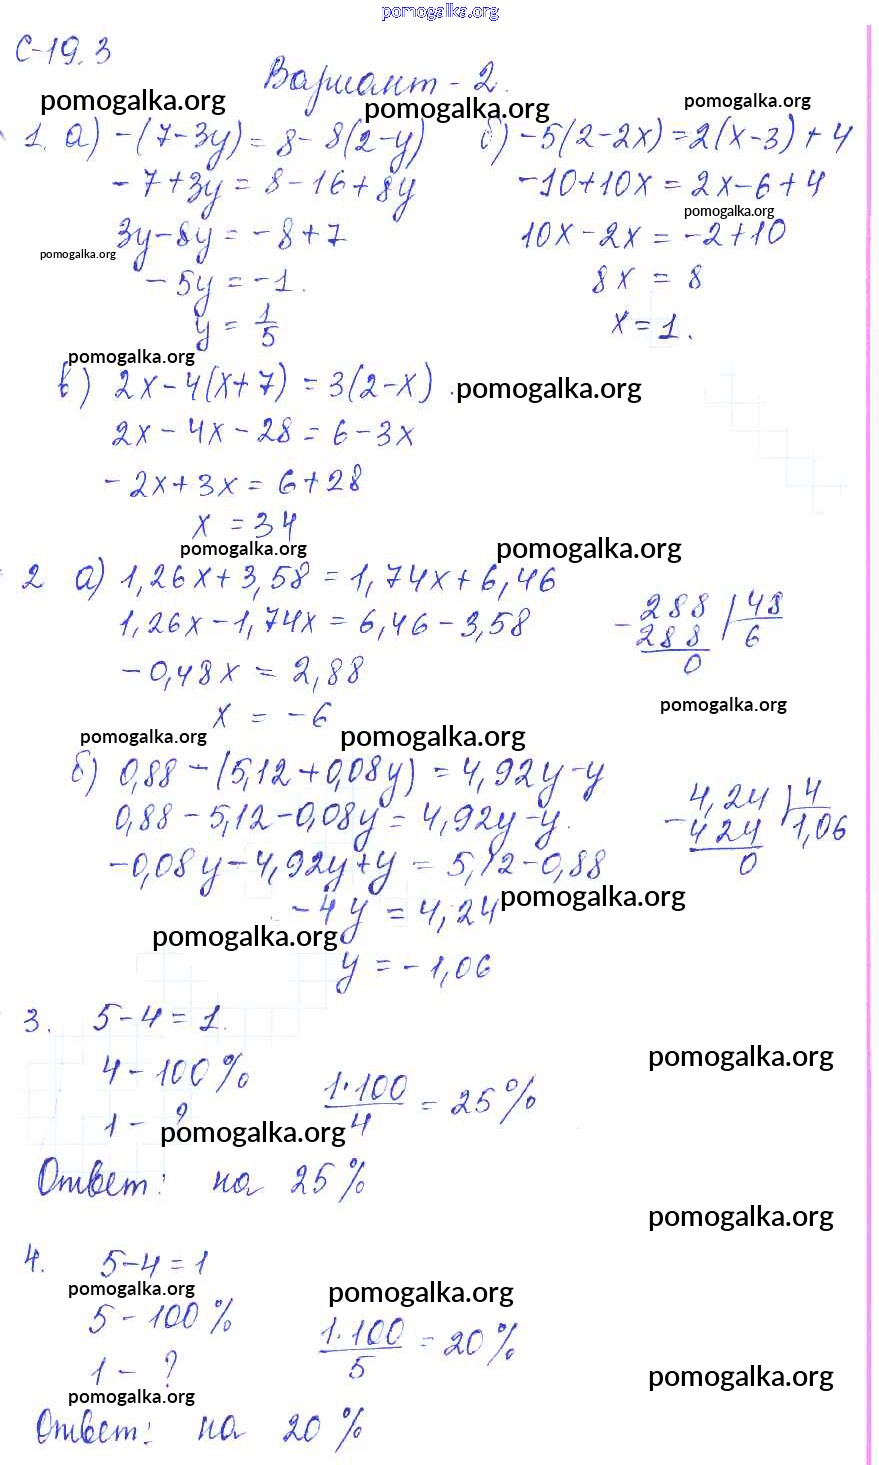 pomogalka.org
С-19.3
Вариант - 2.
pomogalka.org pomogalka.org pomogalka.org
1. а) -(7-3y) = 8 - 8(2-y) б) -5(2-2x)=2(x-3)+4
-7+3y = 8-16+8y -10+10x = 2x-6+4
pomogalka.org
3y-8y = -8+7 10x-2x = -2+10
pomogalka.org
-5y = -1. 8x = 8
y = 1/5 x=1.
pomogalka.org
в) 2x-4(x+7) = 3(2-x) pomogalka.org
2x-4x-28 = 6-3x
-2x+3x = 6+28
x = 34
pomogalka.org pomogalka.org
2 а) 1,26x+3,58=1,74x+6,46
1,26x-1,74x = 6,46-3,58 - 288 | 48
288 6
-0,48x = 2,88 0
x = -6 pomogalka.org
pomogalka.org pomogalka.org
б) 0,88-(5,12+0,08y) = 4,92y-y
0,88-5,12-0,08y = 4,92y-y. - 4,24 | 4
424 1,06
-0,08y-4,92y+y = 5,12-0,88 0
-4y = 4,24 pomogalka.org
pomogalka.org
y = -1,06
3. 5-4=1.
pomogalka.org
4 - 100% 1·100/4 = 25%
1 - ?
pomogalka.org
Ответ: на 25%
pomogalka.org
4. 5-4=1
pomogalka.org pomogalka.org
5 - 100% 1·100/5 = 20%
1 - ?
pomogalka.org
pomogalka.org
Ответ: на 20%